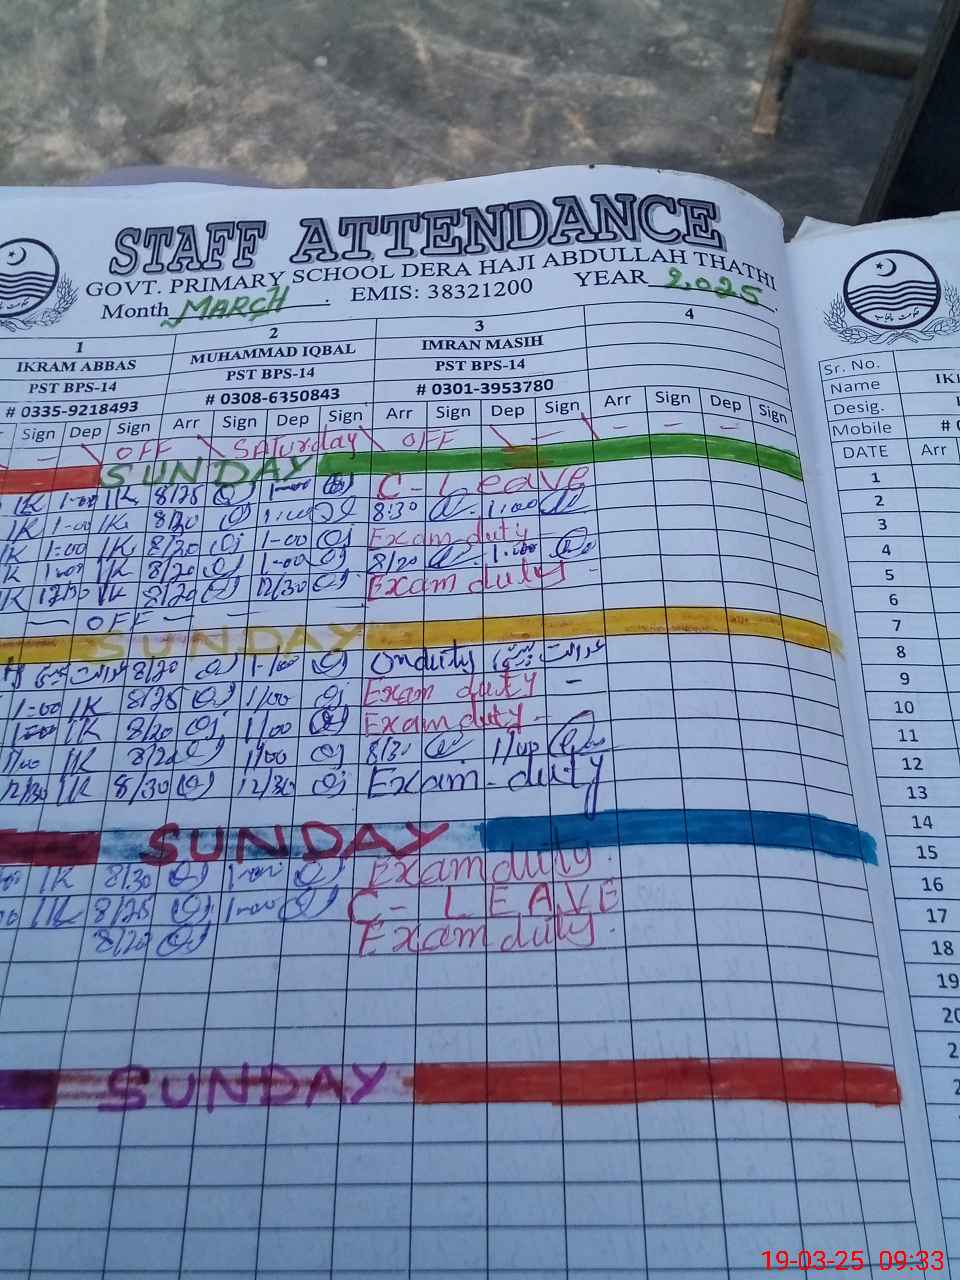 STAFF ATTENDANCE
GOVT. PRIMARY SCHOOL DERA HAJI ABDULLAH THATHI
Month MARCH . EMIS: 38321200 YEAR 2025.
1 2 3 4
IKRAM ABBAS MUHAMMAD IQBAL IMRAN MASIH
PST BPS-14 PST BPS-14 PST BPS-14
# 0335-9218493 # 0308-6350843 # 0301-3953780
Sign Dep Sign Arr Sign Dep Sign Arr Sign Dep Sign Arr Sign Dep Sign
OFF Saturday OFF
SUNDAY
IK 1-00 IK 8/25 C-Leave
IK 1-00 IK 8/20 1:00 8:30 1:00
IK 1:00 IK 8/20 1-00 Exam duty
IK 8/20 1-00 8/20 1:00
IK 12/30 IK 8/20 12/30 Exam duty -
OFF
SUNDAY
8/20 1-/00 Onduty عدالت
1-00 IK 8/25 1/00 Exam duty -
IK 8/20 1/00 Exam duty -
1/00 IK 8/20 1/00 8/30
12/30 IK 8/30 12/30 Exam-duty
SUNDAY
IK 8/30 1-00 Exam duty.
IK 8/25 1-00 C- LEAVE
8/20 Exam duty.
SUNDAY
Sr. No.
Name IK
Desig.
Mobile # 0
DATE Arr
1
2
3
4
5
6
7
8
9
10
11
12
13
14
15
16
17
18
19
20
2
2
19-03-25 09:33